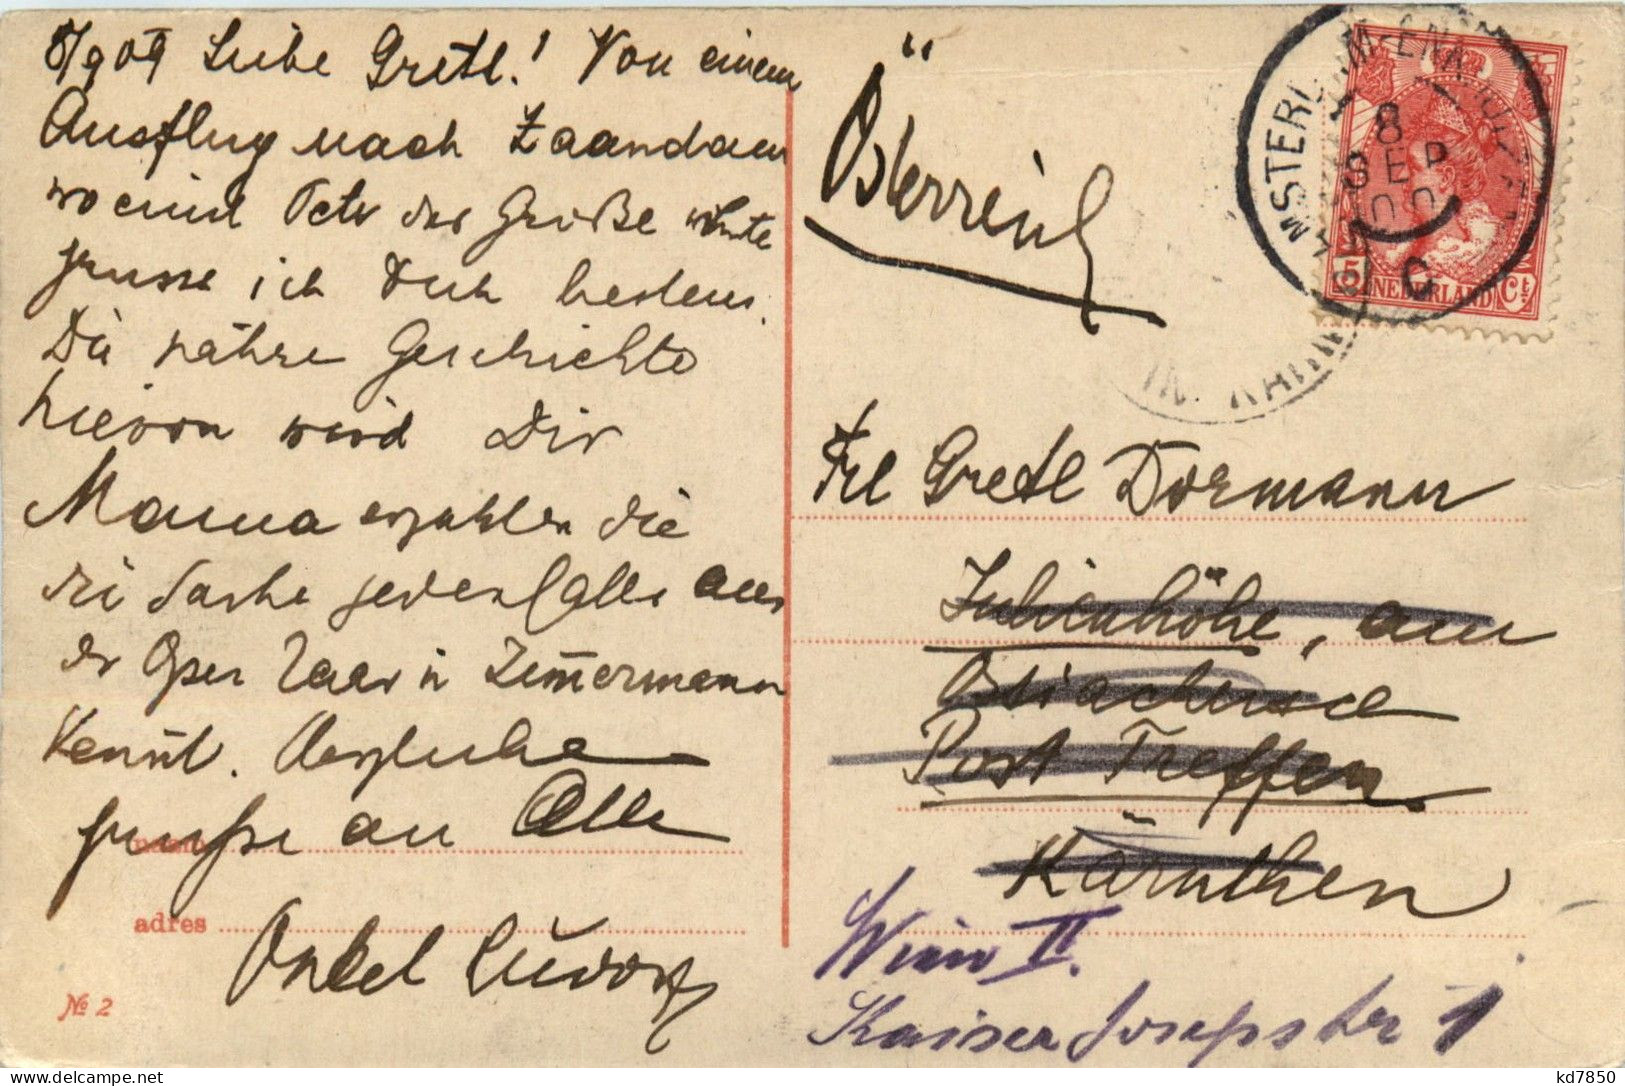 8/9 09 Liebe Gretl! Von einem
Ausflug nach Zaandam
wo einst Peter der Große wohnte
grüsse ich Dich bestens.
Die nähre Geschichte
hievon wird Dir
Mama erzählen die
die Sache jedenfalls aus
der Oper Zaar u Zim̅ermann
kennt. Herzliche
Grüße an Alle
Onkel
naam
adres
№ 2
Österreich
AMSTERDAM-ENKHUIZEN
8
SEP
C
5
NEDERLAND
Ct
Frl Gretl Dormann
Julienhöhe, am
Ossiachersee
Post Treffen
Kärnthen
Wien II.
Kaiser Josefstr 1
delcampe.net
kd7850